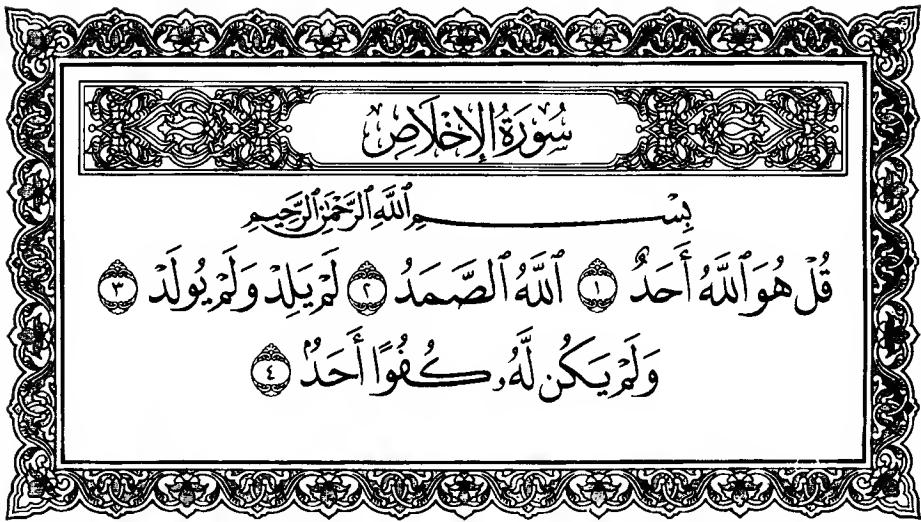 سُورَةُ الْإِخْلَاصِ
بِسْمِ ٱللَّهِ ٱلرَّحْمَٰنِ ٱلرَّحِيمِ
قُلْ هُوَ ٱللَّهُ أَحَدٌ ١ ٱللَّهُ ٱلصَّمَدُ ٢ لَمْ يَلِدْ وَلَمْ يُولَدْ ٣
وَلَمْ يَكُن لَّهُۥ كُفُوًا أَحَدٌۢ ٤